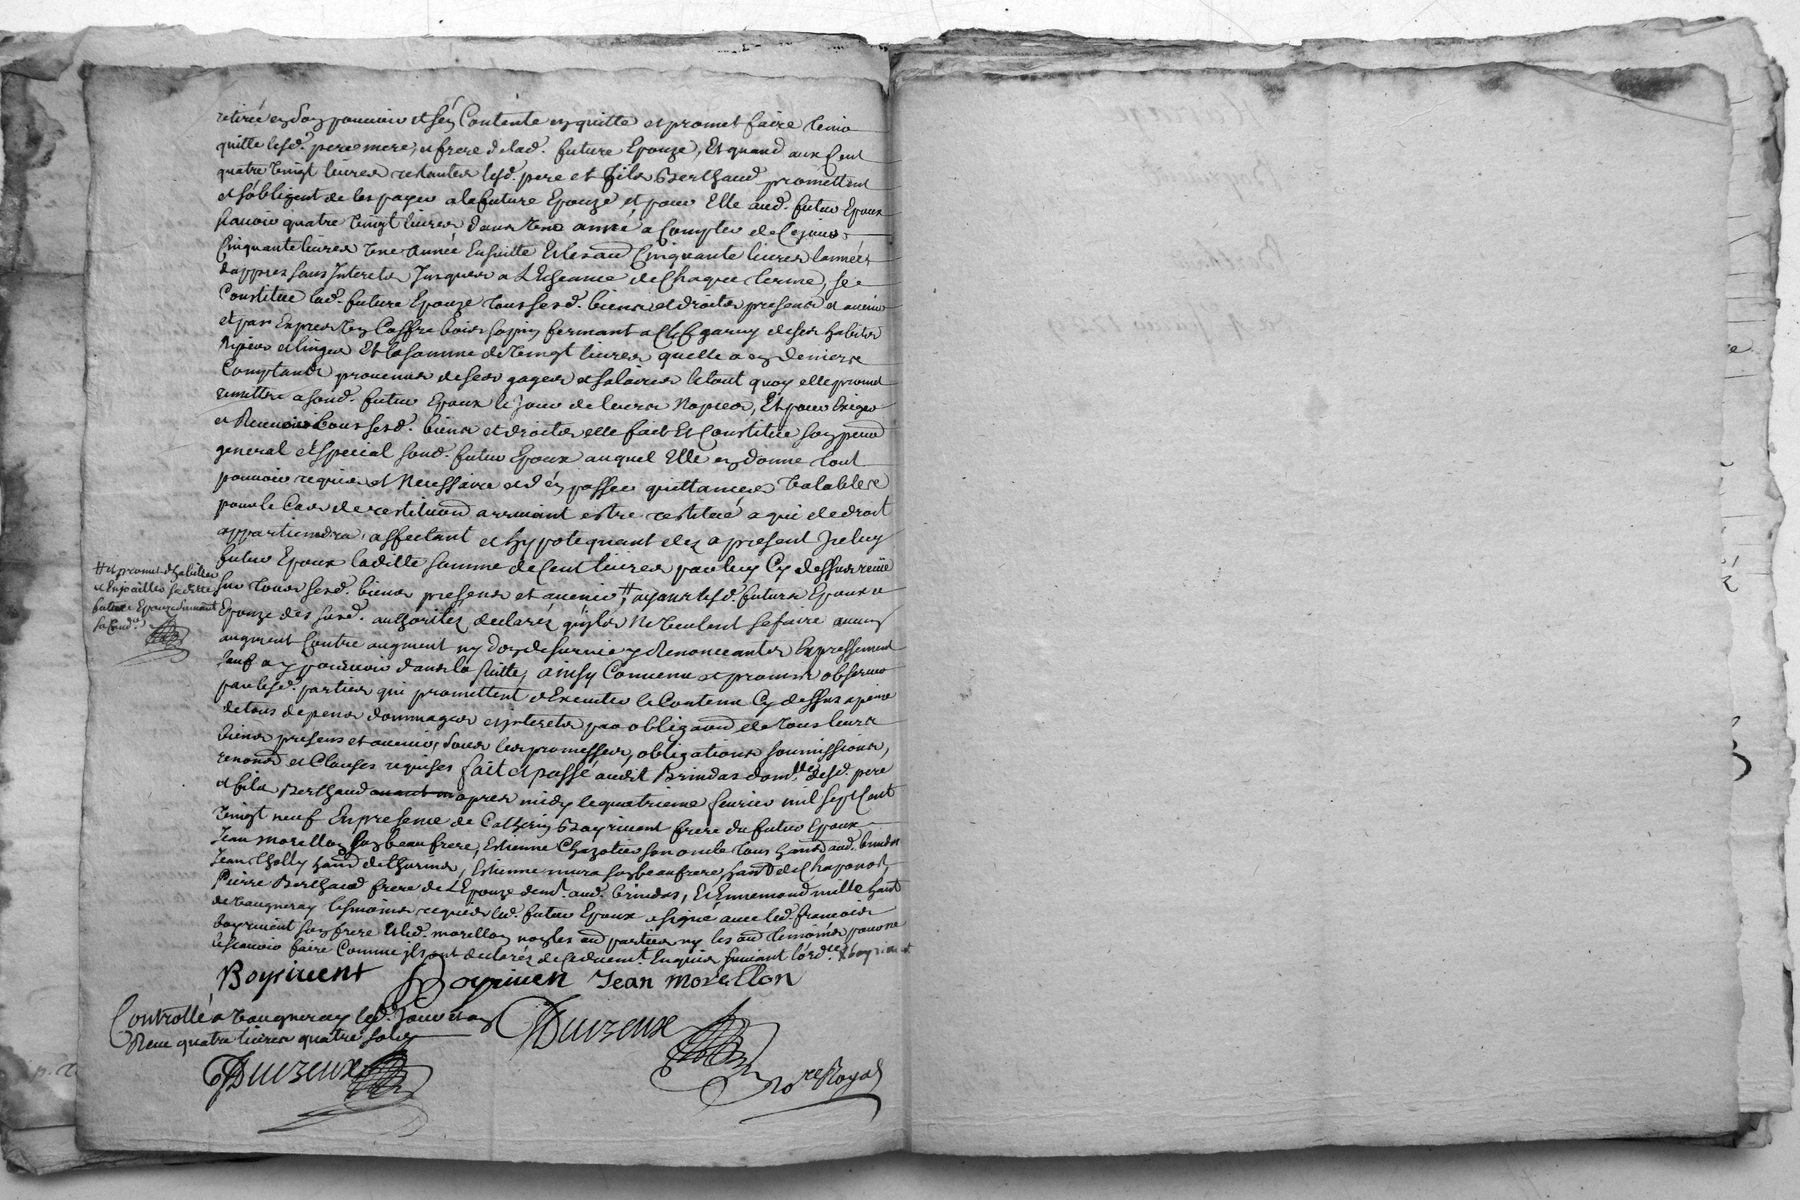 retirée en son pouvoir et s'en Contente en quitte et promet faire tenir
quitte lesd. pere mere, et frere de lad. future Epouze, Et quand aux Cent
quatre vingt livres restantes lesd. pere et fils Berthaud promettent
et s'obligent de les payer a la future Epouze et pour Elle aud. futur Epoux
scavoir quatre vingt livres dans une année a Compter de Ce jour,
Cinquante livres une Année Ensuitte Et les aud Cinquante livres l'année
d'appres sans Interets Jusques a L'Echeance de Chaque terme, se
Constitue lad. future Epouze tous sesd. biens et droits presens et avenir
et par Expres un Coffre bois sapin fermant a Clef garny de ses habits
nipes et linges Et la somme de vingt livres quelle a en deniers
Comptants provenus de ses gages et salaires le tout quoy elle promet
remettre a sond. futur Epoux le Jour de leurs Nopces, Et pour Exiger
et Recevoir tous sesd. biens et droits elle fait Et Constitue son procur
general et special sond. futur Epoux auquel Elle en donne tout
pouvoir requis et Necessaire et d'en passer quittances valables
pour le Cas de restitution arrivant estre restitué a qui de droit
appartiendra affectant et hypotequant dez a present Iceluy
futur Epoux laditte somme de Cent livres par luy Cy dessus reçüe
sur tous sesd. biens presens et avenir # ayant lesd. futurs Epoux et
# et promet d'habiller
et Enjoailler saditte
future Epouze suivant
sa Cond.on
Epouze des susd. authoritez declarez qu'ils Ne veulent se faire aucun
augment Contre augment ny don de survie y Renonceants Expressement
sauf a y pourvoir dans la suitte, ainsy Convenu et promis observer
par lesd. parties qui promettent d'Executer le Contenu Cy dessus a peine
de tous depens dommages et interets par obligaon de tous leurs
biens presens et avenir, sous les promesses, obligations soumissions,
renonons et Clauses requises fait et passé audit Brindas domlle desd. pere
et fils Berthaud avant m apres midy le quatrieme fevrier mil sept Cent
vingt neuf En presence de Catherin Bayrivent frere du futur Epoux
Jean morellon son beau frere, Estienne Chazotier son oncle tous hants aud. brindas
Jean tholly hant de thurins, Estienne mura son beaufrere hant de Chaponost,
Pierre Berthaud frere de L'Epouze demt. aud. brindas, Et Ennemond mille hant
de vaugneray tesmoins requis led. futur Epoux a signé avec led. francois
bayrivent son frere Et led. morellon non les aud parties ny les aud temoins pour ne
le scavoir faire Comme ils ont declarés de Ce duemt. Enquis suivant l'ordce.
Boyrivent Boyriven Jean Morellon
Controllé a vaugneray led. Jour et an
Receu quatre livres quatre sols
Duizeux
Duizeux
Nore Royal